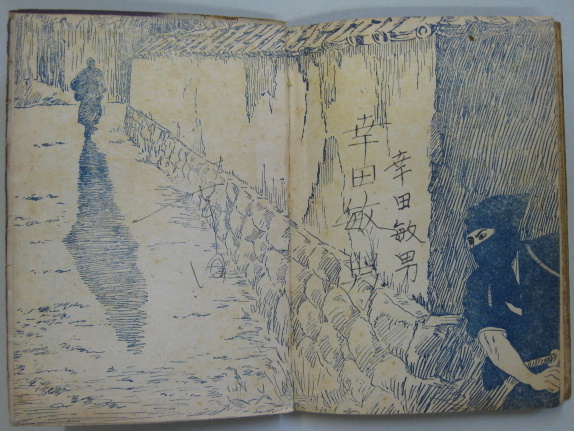 幸田敏男
幸田敏男